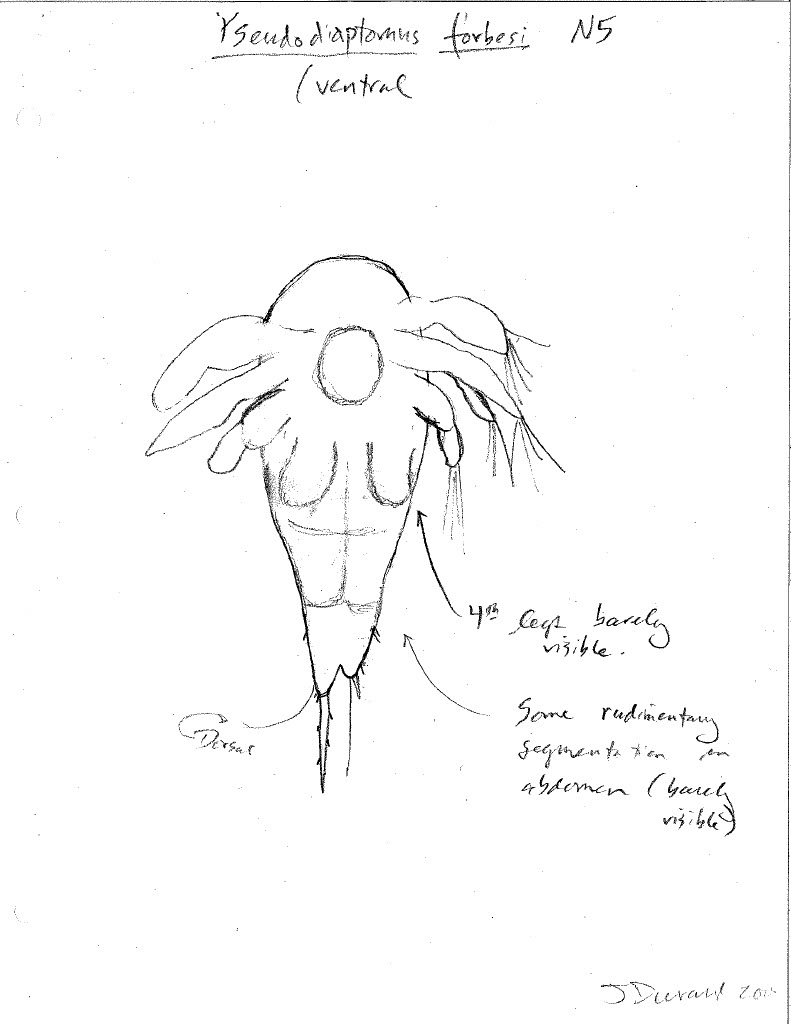 Pseudodiaptomus forbesi N5
(ventral
4th legs barely
visible.
Some rudimentary
segmentation in
abdomen (barely
visible)
Dorsal
J Durand